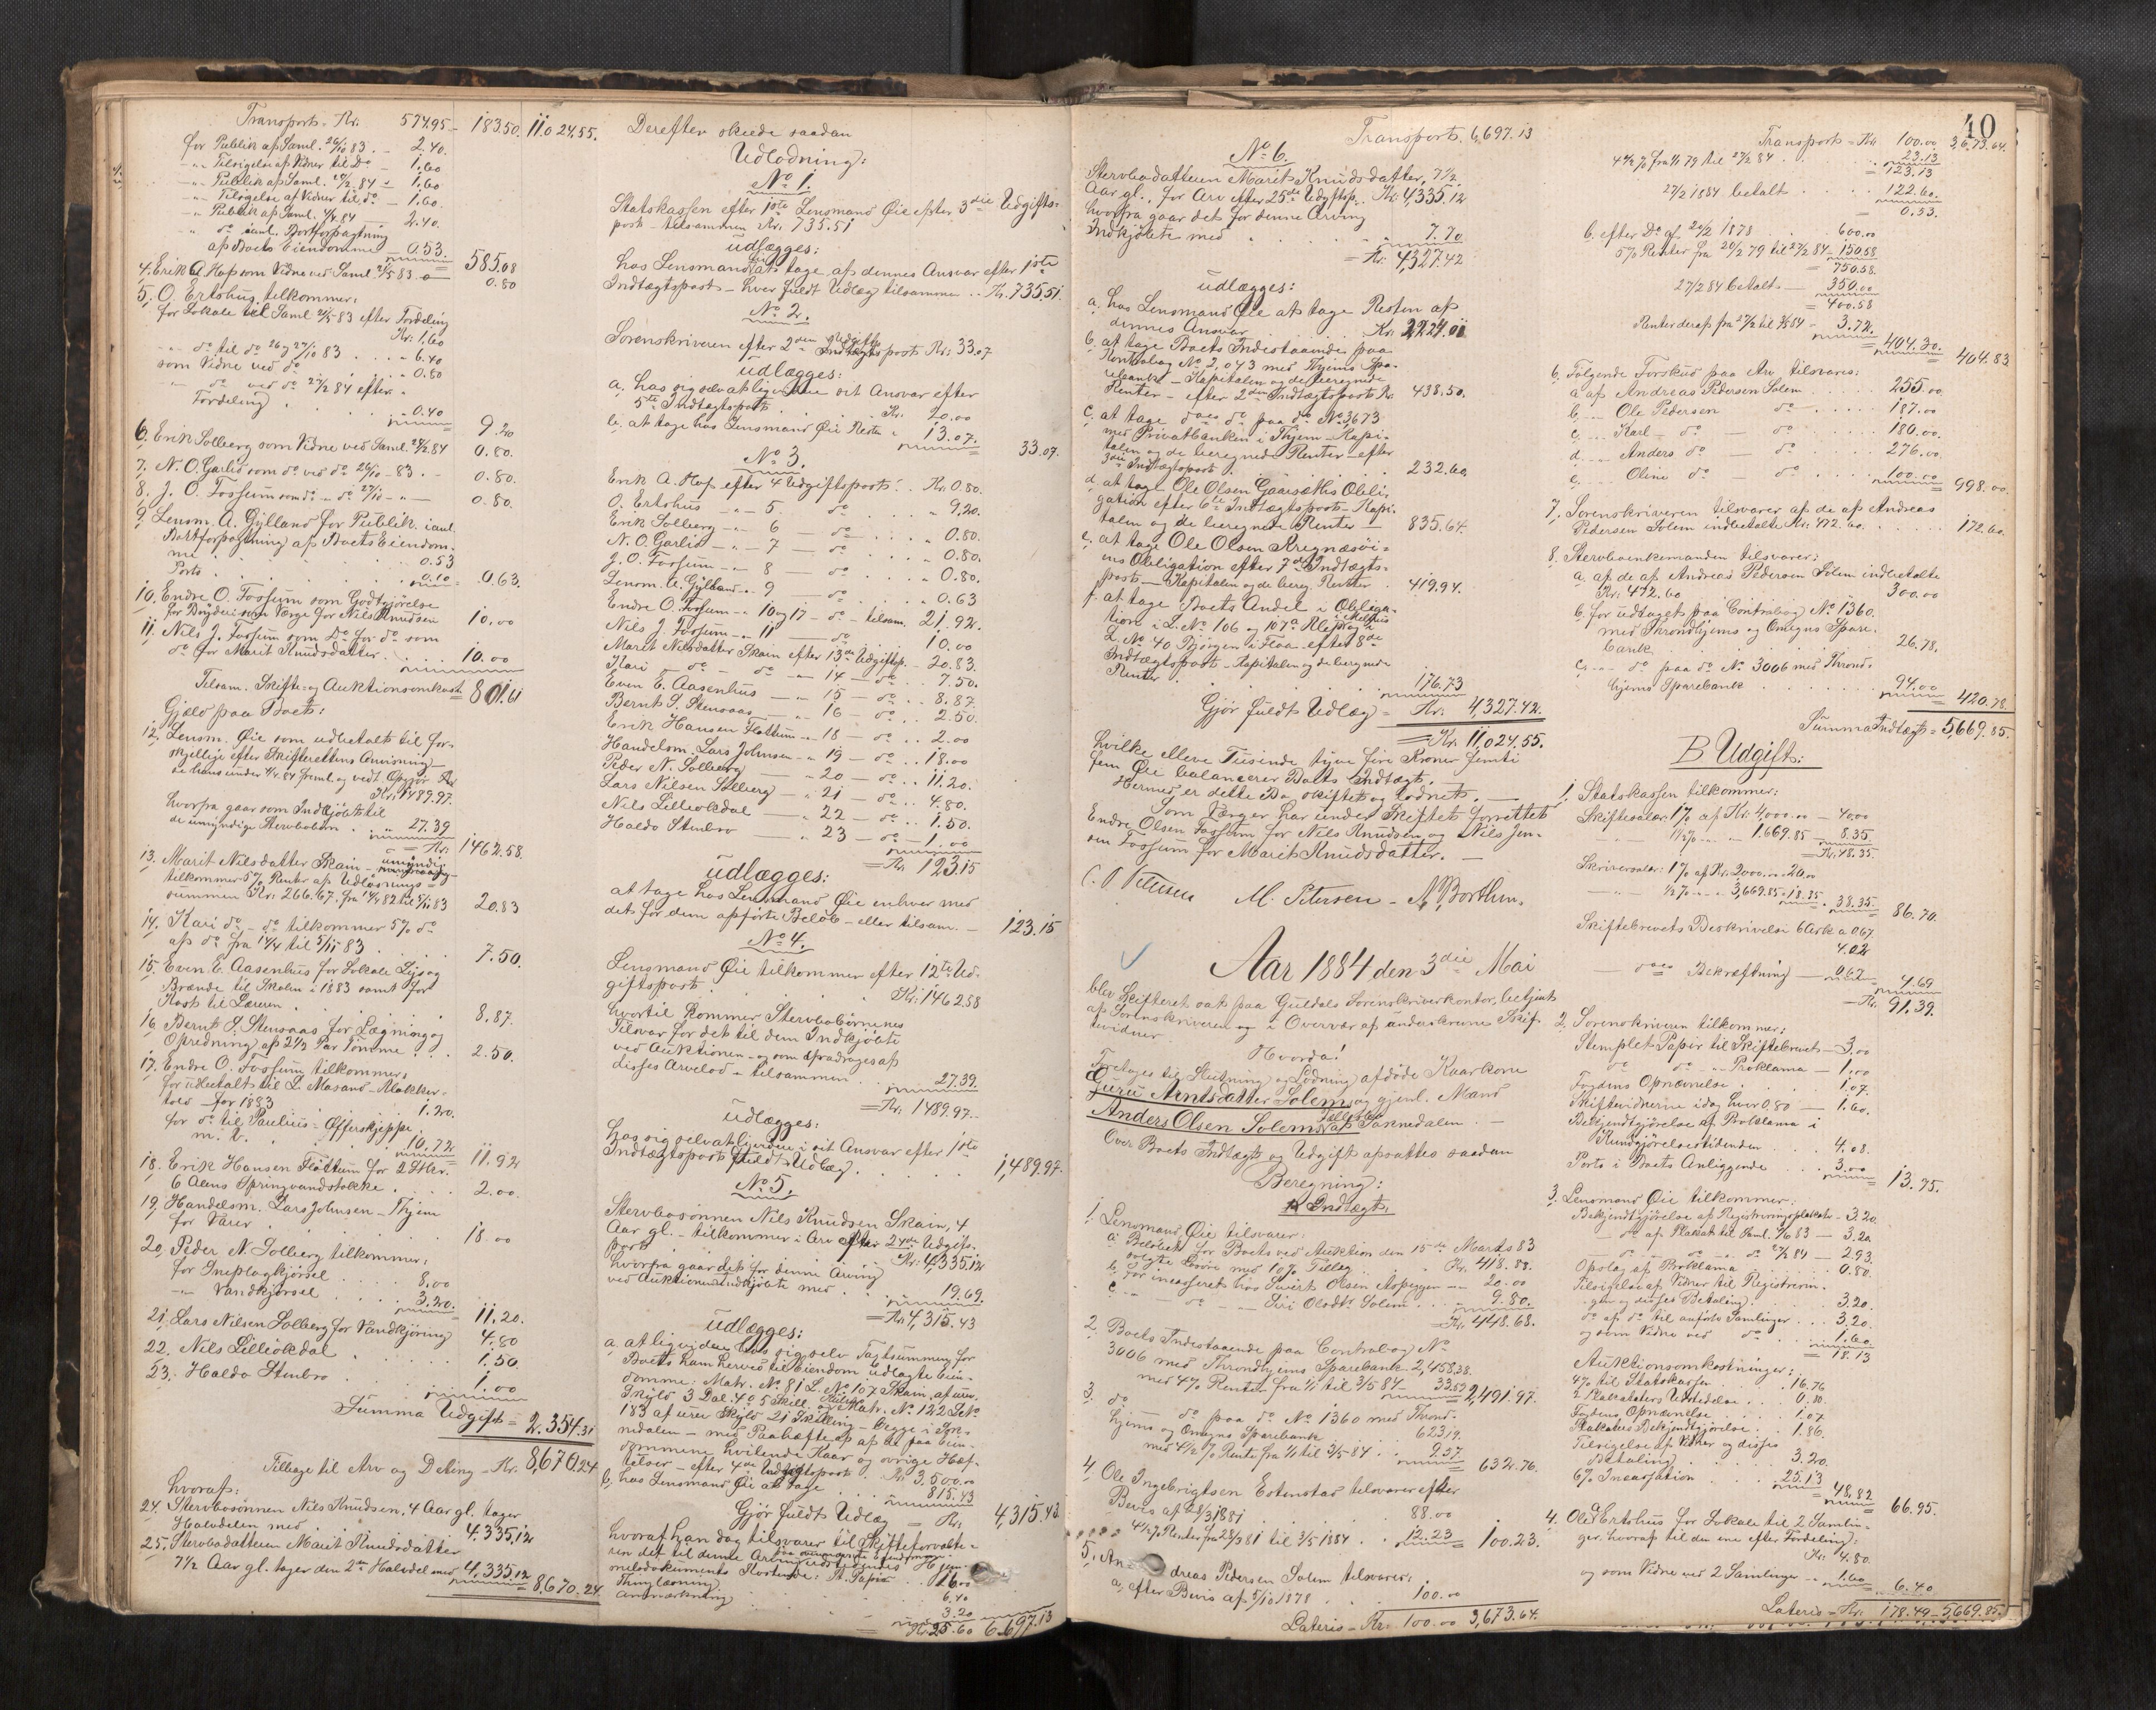 Transport Kr. 574.95 - 183.50. 11.024.55.
for Publik. af Saml. 26/10 83. - 2.40.
-"- Tilsigelse af Vidner til Do - 1.60
-"- Publik. af Saml. 27/2 84 - 1.60
-"- Tilsigelse af Vidner til do - 1.60.
-"- Publik. af Saml. 4/4 84 - 2.40.
" do aml. Bortforpagtning
af Boets Eiendomme - 0.53. 585.08
4. Erik A. Hof som Vidne ved Saml. 2/5 83 0.80
5. O. Ertshus tilkommer:
for Lokale til Saml. 2/5 83 efter Fordeling
Kr. 1.60
-"- do til do 26 og 27/10 83 . . . 6.40
som Vidne ved do . . . 0.80
" do ved do 27/2 84 efter
Fordeling . . . 0.40 9.20
6. Erik Solberg som Vidne ved Saml. 27/2 84 0.80.
7. N. O. Garlid som do ved do 26/10 - 83. - 0.80.
8. J. O. Fossum som do - do 27/10 - " - 0.80.
9. Lensm. A. Gylland for Publik. i anl.
Bortforpagtning af Boets Eiendom-
me . . . 0.53
Porto . . . 0.10 = 0.63.
10. Endre O. Fossum som Godtgjørelse
for Bryderi som Værge for Nils Knudsen 10.00
11. Nils J. Fossum som Do for do som
do for Marit Knudsdatter . . . 10.00
Tilsam. Skifte- og Auktionsomkost. = 801.61
Gjæld paa Boet:
12. Lensm. Øie som udbetalt til for-
skjellige efter Skifterettens Anvisning -
Kr. 1489.97.
hvorfra gaar som Indkjøbt til
de umyndige Stervbobørn . " 27.39
= Kr. 1462.58.
13. Marit Nilsdatter Skain - umyndig -
tilkommer 5% Renter af Udløsnings-
summen Kr. 266.67. fra 14/4 82 til 5/11 83 20.83
14. Kari do - do tilkommer 5% do
af do fra 14/4 til 5/11 83 . . . 7.50.
15. Even E. Aasenhus for Lokale Lys og
Brænde til Skolen i 1883 samt for
Kost til Læreren . . . 8.87.
16. Bernt S. Stensaas for Lægning og
Opredning af 2 1/2 Par Tømme . . 2.50.
17. Endre O. Fossum tilkommer:
for udbetalt til L. Masand - Klokker-
told - for 1883 1.20.
for do til Paulius - Offerskjeppe
m. v. 10.72 11.92
18. Erik Hansen Flåttum for 2 Stkr.
6 Alens Springvandstokke . . . 2.00.
19. Handelsm. Lars Johnsen - Thjem
for Varer . . . 18.00
20. Peder N. Solberg tilkommer:
for Sneplogkjørsel . . . 8.00
-"- Vandkjørsel . . . 3.20. 11.20.
21. Lars Nilsen Solberg for Vandkjøring 4.80
22. Nils Lilleökdal . . . 1.50.
23. Haldo Stenbro . . . 1.00
Summa Udgift = 2.354.31
Tilbage til Arv og Deling - Kr. 8,670.24
hvoraf:
24. Stervbosønnen Nils Knudsen, 4 Aar gl. tager
Halvdelen med . . . 4.335.12
25. Stervbodatteren Marit Knudsdatter
7 1/2 Aar gl. tager den 2den Halvdel med 4,335.12 8,670.24
Derefter skede saadan
Udlodning:
No 1.
Statskassen efter 1ste Lensmand Øie efter 3die Udgifts-
post - tilsammen Kr. 735.51
Udlægges:
hos Lensmand Øie at tage af dennes Ansvar efter 1ste
Indtægtspost - hver fuldt Udlæg tilsammen . . Kr. 735.51.
No 2.
Sorenskriveren efter 2den Udgifts post Kr. 33.07.
Udlægges:
a. hos sig selv at ligvidere sit Ansvar efter
5te Indtægtspost . . . Kr. 20.00
b. at tage hos Lensmand Øie Resten " 13.07. 33.07.
No 3.
Erik A. Hof efter 4 Udgiftspost . . Kr. 0.80.
O. Ertshus -"- 5. do . . . " 9.20.
Erik Solberg -"- 6 do . . . " 0.80.
N. O. Garlid -"- 7 - do . . . " 0.80.
J. O. Fossum -"- 8 - do . . . " 0.80.
Lensm. A. Gylland -"- 9 - do . . . " 0.63
Endre O. Fossum -"- 10 og 17 - do - tilsam. 21.92.
Nils J. Fossum -"- 11 - do . . . 10.00
Marit Nilsdatter Skain efter 13de Udgiftsp. - 20.83.
Kari - do - do -"- 14 - do . . 7.50.
Even E. Aasenhus -"- 15 - do . . 8.87.
Bernt S. Stensaas -"- 16 - do . . 2.50.
Erik Hansen Flåttum -"- 18 - do . . 2.00
Handelsm. Lars Johnsen -"- 19 - do . . 18.00
Peder N. Solberg -"- 20 - do . . 11.20.
Lars Nilsen Solberg -"- 21 - do . . 4.80.
Nils Lilleökdal -"- 22 - do . . 1.50.
Haldo Stenbro -"- 23 - do - 1.00
= Kr. 123.15
Udlægges:
at tage hos Lensmand Øie enhver med
det for dem opførte Beløb - eller tilsam. - 123.15
No 4.
Lensmand Øie tilkommer efter 12te Ud-
giftspost . . . Kr. 1462.58
hvortil kommer Stervbobørnenes
Tilsvar for det til dem Indkjøbte
ved Auktionen - og som fradrages af
disses Arvelod - tilsammen . . . 27.39.
= Kr. 1489.97.
Udlægges:
hos sig selv at ligvidere i sit Ansvar efter 1ste
Indtægtspost fuldt Udlæg . . . 1,489.97.
No 5.
Stervbosønnen Nils Knudsen Skain, 4
Aar gl. - tilkommer i Arv efter 24de Udgifts-
post . . . Kr. 4,335.12
hvorfra gaar det for denne Arving
ved Auktionen Indkjøbte med . . . 19.69.
= Kr. 4,315.43
Udlægges:
a. at ligvidere hos sig selv Taxtsummen for
Boets ham herved til Eiendom udlagte Eien-
domme: Matr. No 81 L. No 107 Skain, af urev.
Skyld 3 Dal. 4 o 5 Skill. og Matr. No 122 L No
183 af urev. Skyld 21 Skilling - begge i Sok-
nedalen - med Paaheftelse af de paa Eien-
dommene hvilende Kaar og øvrige Hef-
telser - efter 4de Indtægtspost . . Kr. 3,500.00
b. hos Lensmand Øie at tage . . . " 815.43
Gjør fuldt Udlæg = Kr. 4,315.43.
hvoraf han dog tilsvarer til Skifteforvalte-
ren det til denne Arving udstedende Hjem-
melsdokuments Kostende: St. Papir . . . 16.00
Thinglæsning . . . 6.40
Anmærkning . . . 3.20
Kr. 25.60 6.697.13
Transport 6,697.13
No 6.
Stervbodatteren Marit Knudsdatter, 7 1/2
Aar gl., for Arv efter 25de Udgiftsp. . Kr. 4,335.12
hvorfra gaar det for denne Arving
Indkjøbte med . . . " 7.70
= Kr. 4,327.42
Udlægges:
a. hos Lensmand Øie at tage Resten af
dennes Ansvar . . . Kr. 2224.01
b. at tage Boets Indestaaende paa
Kontrabog No 2,043 med Thjems Spa-
rebank - Kapitalen og de beregnede
Renter - efter 2den Indtægtspost Kr. 438.50.
c. at tage do do paa do No 3673
med Privatbanken i Thjem - Kapi-
talen og de beregnede Renter - efter
3die Indtægtspost . . . 232.60.
d. at tage Ole Olsen Gaaresæths Obli-
gation efter 6te Indtægtspost - Kapi-
talen og de beregnede Renter - 835.64.
e. at tage Ole Olsen Kregnæsöi-
ens Obligation efter 7de Indtægts-
post - Kapitalen og de bereg. Renter . 419.94.
f. at tage Boets Andel i Obliga-
tion i L. No 106 og 107a Klep og i Melhus
L. No 40 Bjørgen i Flaa efter 8de
Indtægtspost - Kapitalen og de beregnede
Renter . . . 176.73
Gjør fuldt Udlæg = Kr. 4,327.42.
= Kr. 11,024.55.
hvilke elleve Tusinde tyve fire Kroner femti
fem Øre balancerer Boets Indtægt. -
Hermed er dette Bo skiftet og lodnet. -
Som Værger har under Skiftet forrettet
Endre Olsen Fossum for Nils Knudsen og Nils Jen-
sen Fossum for Marit Knudsdatter. -
C. O. Petersen M. Petersen - N. Borthen.
Aar 1884 den 3die Mai
blev Skifteret sat paa Guldals Sorenskriverkontor, betjent
af Sorenskriveren og i Overvær af underskrevne Skif-
tevidner
Hvorda!
Foretoges til Slutning og Lodning afdøde Kaarkone
Guru Arntsdatter Solems og gjenl. Mand
Anders Olsen Solems Fællesbo af Soknedalen. -
Over Boets Indtægt og Udgift opsattes saadan
Beregning:
A Indtægt,
1. Lensmand Øie tilsvarer:
a. Beløbet for Boets ved Auktion den 15de Marts 83
solgte Løsøre med 10% Tillæg . . . Kr. 418.88.
b. for incasseret hos Sivert Olsen Aspeggen - 20.00
c. -"- do -"- Siri Olsdtr Solem . . . " 9.80.
= Kr. 448.68.
2. Boets Indestaaende paa Contrabog No
3006 med Throndhjems Sparebank 2,458.38.
med 4% Renter fra 1/1 til 3/5 84 - 33.59 2,491.97.
3. do do paa do No 1360 med Thrond-
hjems og Omegns Sparebank . . . 623.19.
med 4 1/2% Rente fra 1/1 til 3/5 - 84 . . 9.57. 632.76.
4. Ole Ingebrigtsen Estenstad tilsvarer efter
Bevis af 28/3 1881 . . . 88.00
4 1/2% Renter fra 28/3 81 til 3/5 1884 . . 12.23 100.23.
5. Andreas Pedersen Solem tilsvarer:
a. efter Bevis af 5/10 1878 . . . 100.00
Lateris - Kr. 100.00 3,673.64.
40
Transport - Kr. 100.00 3,673.64.
4 1/2% fra 1/1 79 til 27/2 84 . . . 23.13
= 123.13
27/2 1884 betalt . . . 122.60.
= 0.53.
b. efter Do af 20/2 1878 . . . 600.00
5% Renter fra 20/2 79 til 27/2 84 - 150.58
= 750.58.
27/2 84 betalt - 350.00
= 400.58
Renter deraf fra 27/2 til 3/5 84 - 3.72.
404.30. 404.83
6. Følgende Forskud paa Arv tilsvares:
a. af Andreas Pedersen Solem . . . 255.00
b. -"- Ole Pedersen do . . . 187.00
c. -"- Karl - do - do . . . 180.00.
d. -"- Anders do - do . . . 276.00.
e. -"- Oline do - do . . . 100.00 998.00.
7. Sorenskriveren tilsvarer af de af Andreas
Pedersen Solem indbetalte Kr. 472.60. . . . 172.60.
8. Stervboenkemanden tilsvarer:
a. af de af Andreas Pedersen Solem indbetalte
Kr. 472.60 . . . 300.00
b. for udtaget paa Contrabog No 1360.
med Throndhjems og Omegns Spare-
bank . . . 26.78.
c. -"- do paa do No 3006 med Thrond-
hjems Sparebank . . . 94.00 420.78.
Summa Indtægt = 5,669.85.
B Udgift:
1. Statskassen tilkommer:
Skiftesalær 1% af Kr. 4,000.00 - 40.00
- 1/2% - " - 1,669.85 - 8.35.
= Kr. 48.35.
Skriversalær: 1% af Kr. 2000.00 - 20.00
- " - 1/2% - " - 3,669.85 - 18.35. 38.35. 86.70.
Skiftebrevets Beskrivelse 6 Ark a 0.67.
4.02
- does Bekræftning - 0.67 4.69
= Kr. 91.39.
2. Sorenskriveren tilkommer:
Stemplet Papir til Skiftebrevet - 3.00
do do -"- Proklama - 1.00
Fogdens Opnævnelse . . . 1.07.
Skiftevidnerne idag hver 0.80 - 1.60.
Bekjendtgjørelse af Proklama i
Kundgjørelsestidenden . . . 4.08.
Porto i Boets Anliggende . . . 3.00 13.75.
3. Lensmand Øie tilkommer:
Bekjendtgjørelse af Registreringsplakater - 3.20.
- do af Plakat til Saml. 1/6 83 - 3.20
do - do -"- do 27/2 84 - 2.93.
Opslag af Proklama . . . 0.80.
Tilsigelse af Vidner til Registrerin-
gen og disses Betaling . . . 3.20.
do af do til anførte Samlinger . . 3.20.
og som Vidne ved do . . . 1.60
= 18.13
Auktionsomkostninger:
4% til Statskassen . . . 16.76
2 Plakaters Udstedelse . . . 0.80.
Fogdens Opnævnelse . . . 1.07
Plakaters Bekjendtgjørelse . . . 1.86.
Tilsigelse af Vidner og disses
Betaling . . . 3.20.
6% Incassation . . . 25.13 48.82 66.95.
4. Ole Ertshus for Lokale til 2 Samlin-
ger, hvoraf til den ene efter Fordeling:
Kr. 4.80.
og som Vidne ved 2 Samlinger - 1.60 6.40
Lateris - Kr. 178.49 - 5,669.85.